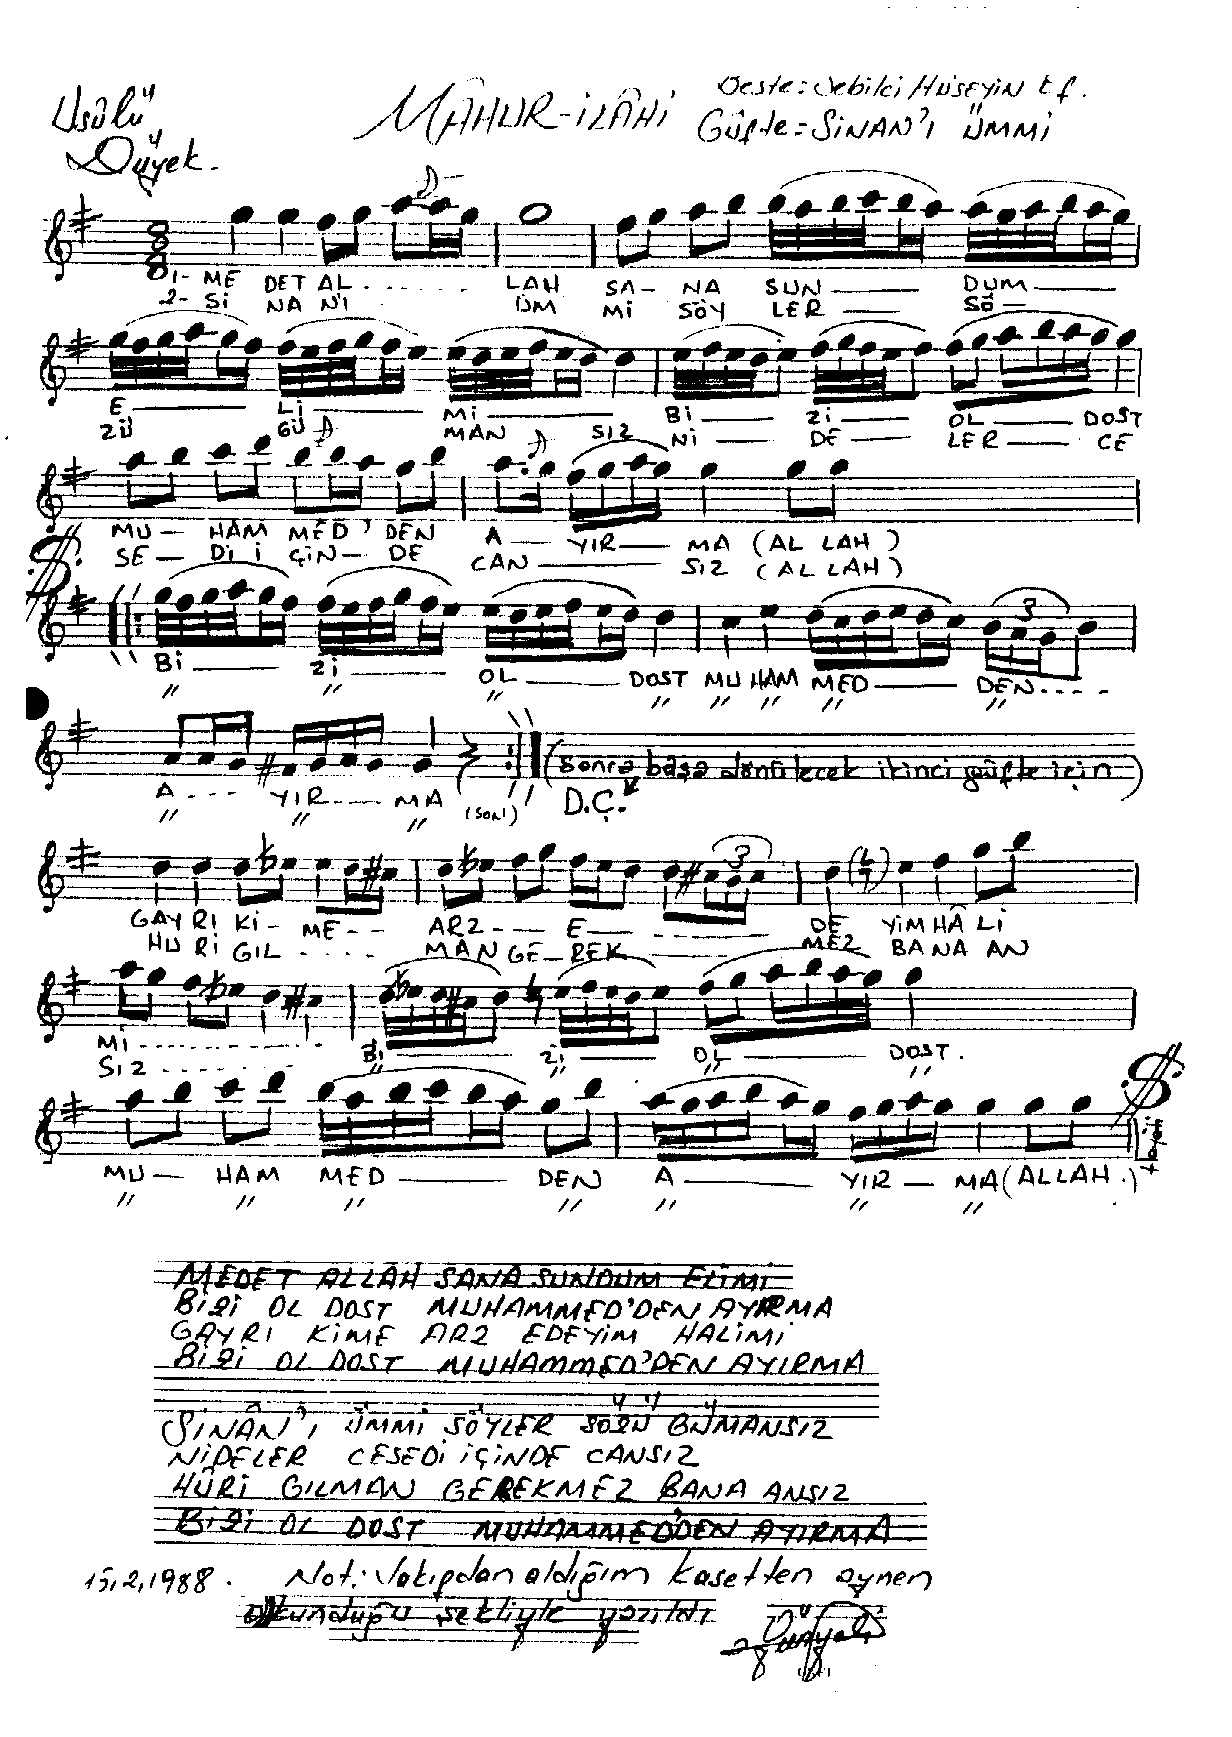 Usûlü
Düyek.
MÂHUR-İLÂHİ
Beste: Sebilci HÜSEYİN Ef.
Güfte = SİNAN'I ÜMMİ
8
8
1- ME DET AL . . . . . . LAH SA - NA SUN DUM
2- Sİ NA N'I ÜM Mİ SÖY LER SÖ
E Lİ Mİ Bİ Zİ OL DOST
ZÜ GÜ MAN SIZ Nİ DE LER CE
MU - HAM MED' DEN A YIR MA (AL LAH)
SE - Dİ İ ÇİN - DE CAN SIZ (AL LAH)
3
Bİ Zİ OL DOST MU HAM MED DEN . . . .
" " " " " " " "
A - - - - YIR - - - - MA (SON)
" " "
(Sonra başa dönülecek ikinci güfte için)
D.Ç.
3
GAY RI Kİ - ME - - ARZ - - - E - - DE YİM HÂ Lİ
HU Rİ GIL . . . . MAN GE - REK MEZ BANA AN
Mİ Bİ Zİ OL DOST.
SIZ " " " "
MU - HAM MED DEN A YIR - MA (ALLAH.)
" " " " " " "
MEDET ALLAH SANA SUNDUM ELİMİ
BİZİ OL DOST MUHAMMED'DEN AYIRMA
GAYRI KİME ARZ EDEYİM HALİMİ
BİZİ OL DOST MUHAMMED'DEN AYIRMA
SİNÂN'I ÜMMİ SÖYLER SÖZÜ GÜMANSIZ
NİDELER CESEDİ İÇİNDE CANSIZ
HÛRİ GILMAN GEREKMEZ BANA ANSIZ
BİZİ OL DOST MUHAMMED'DEN AYIRMA
15.2.1988. Not: Vakıfdan aldığım kasetten aynen
okunduğu şekliyle yazıldı